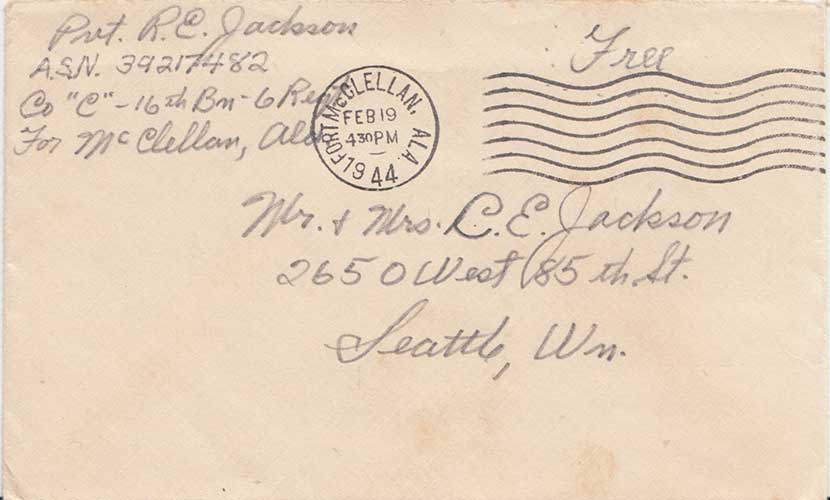 Pvt. R.E. Jackson
A.S.N. 39217482
Co "C" - 16th Bn - 6 Regt
For McClellan, Ala
FORT McCLELLAN, ALA.
FEB 19
4 30 PM
1944
Free
Mr. & Mrs. C.E. Jackson
2650 West 85th St.
Seattle, Wn.